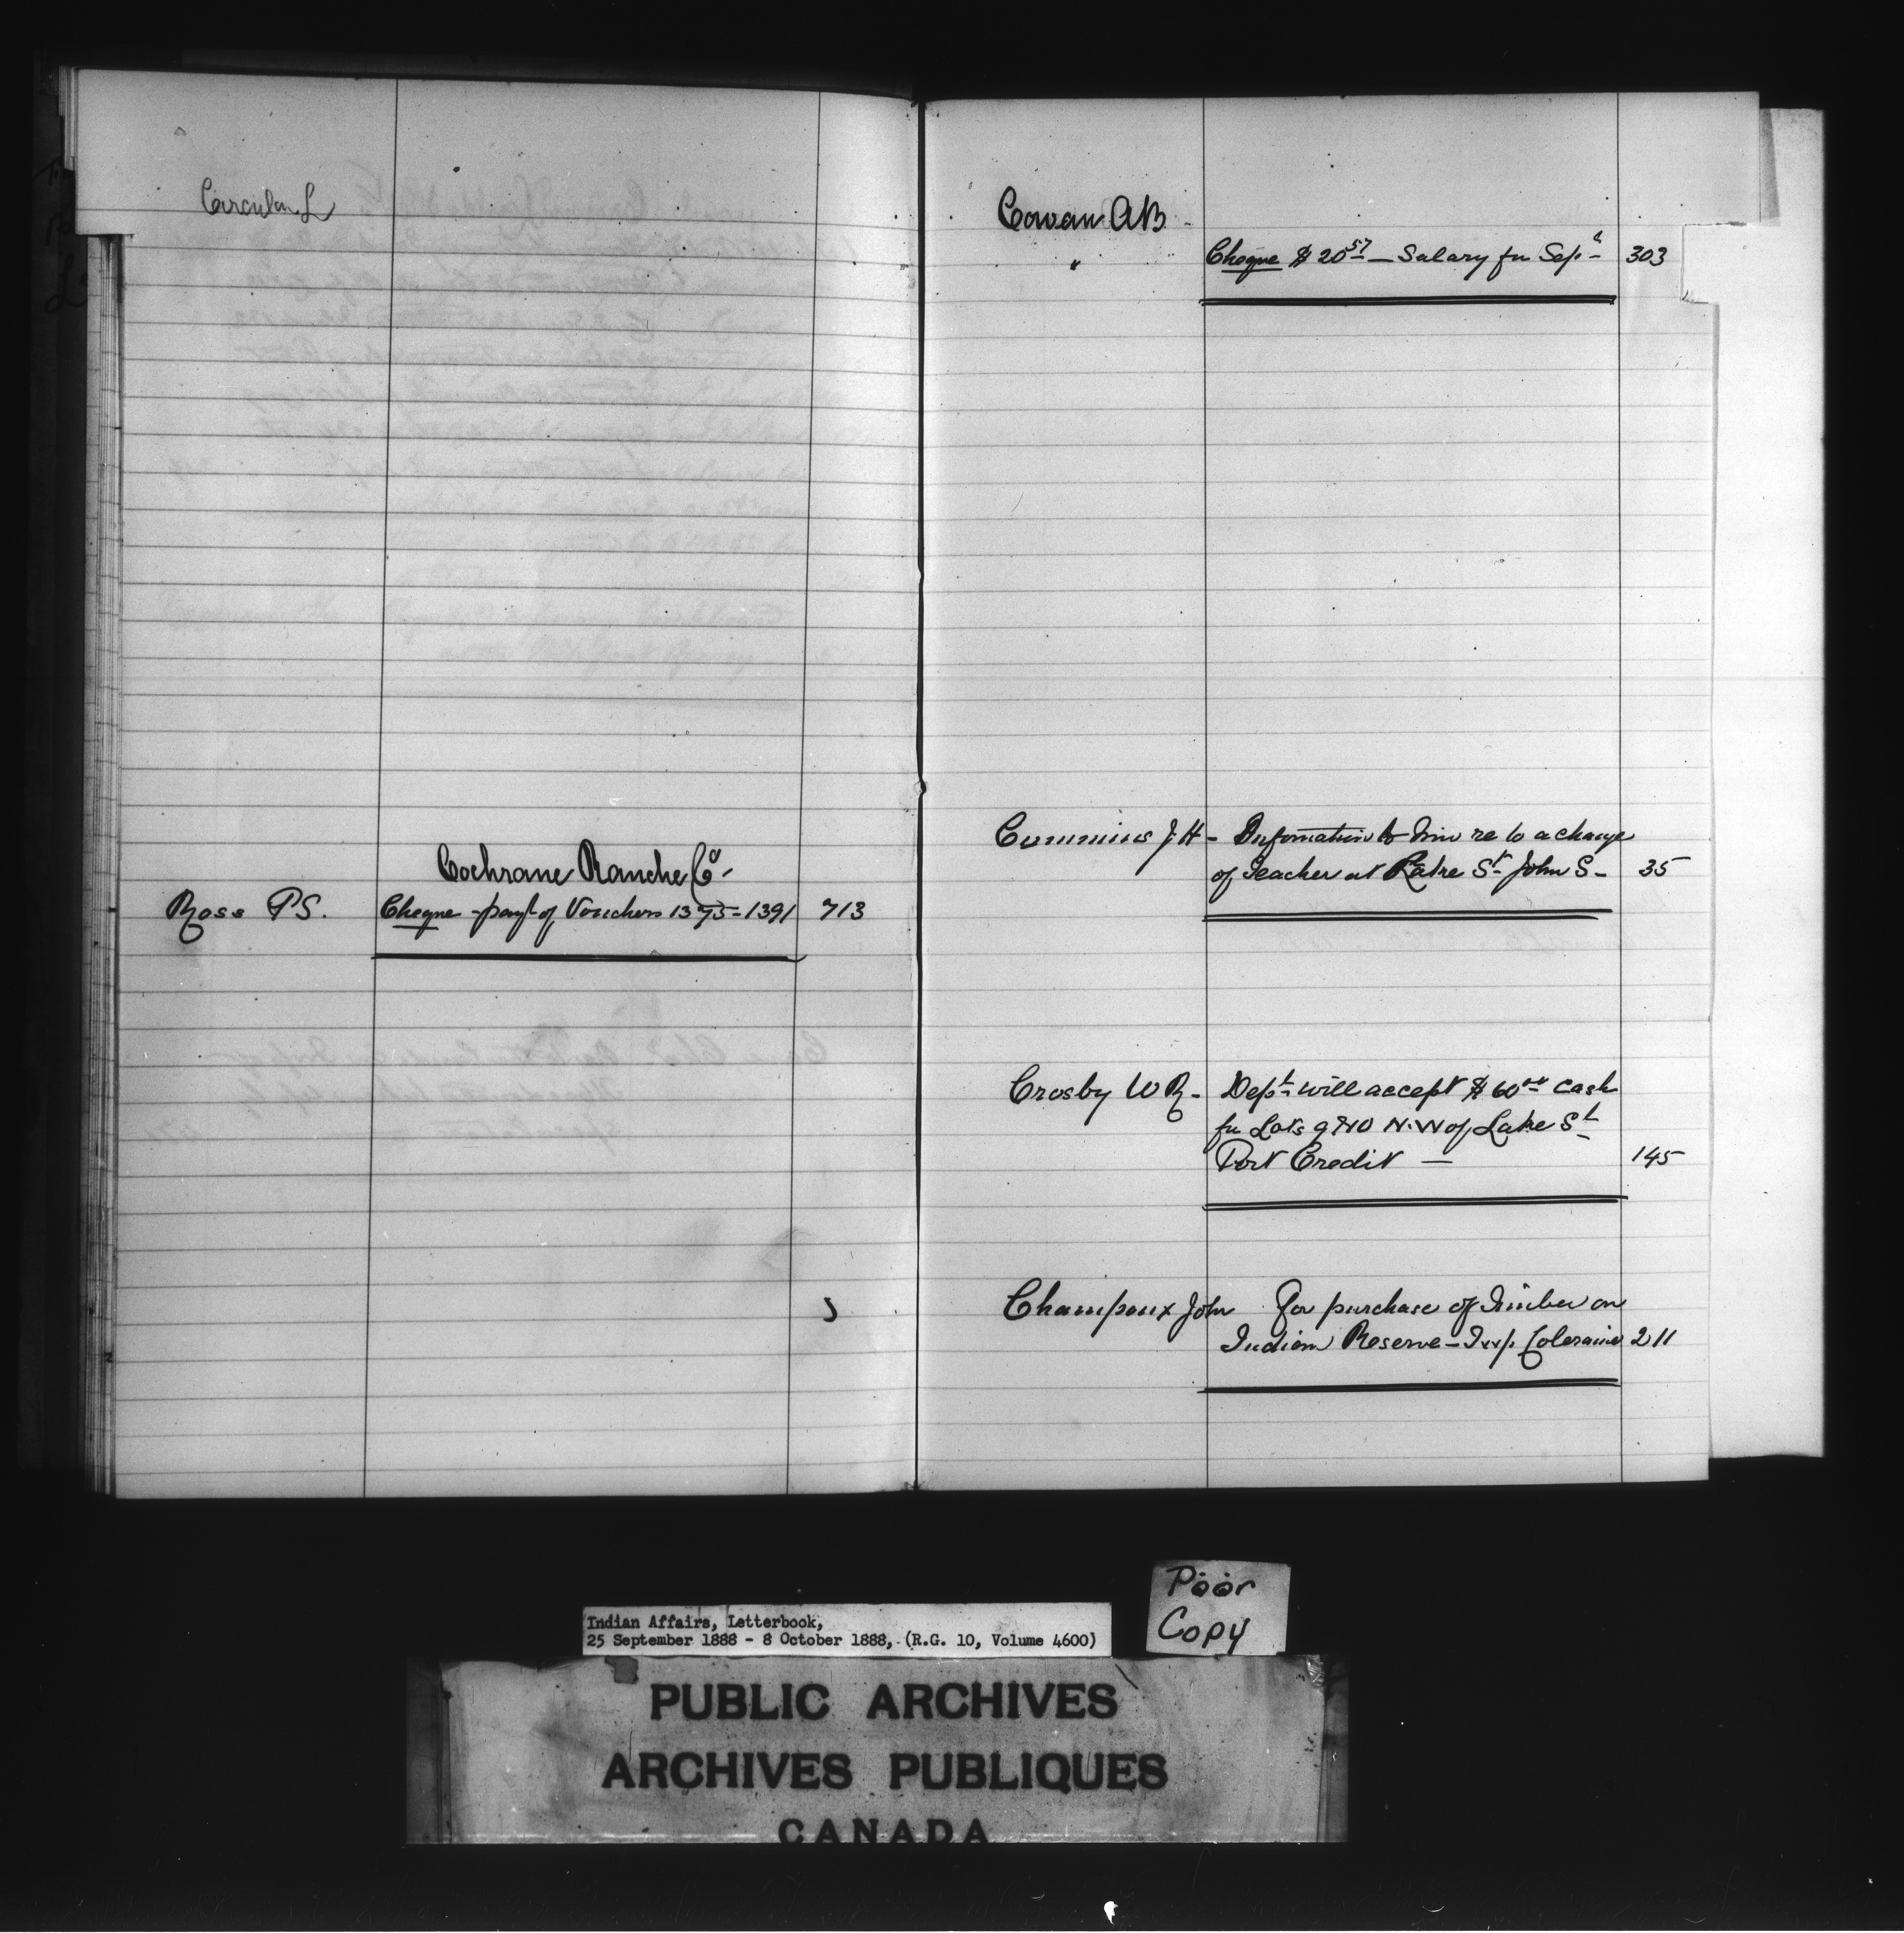 Circular L
Cochrane Ranche Co.
Ross P.S. Cheque - payt of Vouchers 1375 = 1391 713
Cowan A B -
" Cheque $ 20 57 — Salary for Sept 303
Cummins J. H - Information to him re to a change
of Teacher at Lake St John S - 35
Crosby W R - Dept will accept $ 60 00 cash
for Lots 9 & 10 N.W of Lake St
Port Credit — 145
Champoux John For purchase of Timber on
Indian Reserve - Twp. Coleraine 211
Poor
Copy
Indian Affairs, Letterbook,
25 September 1888 - 8 October 1888, (R.G. 10, Volume 4600)
PUBLIC ARCHIVES
ARCHIVES PUBLIQUES
CANADA